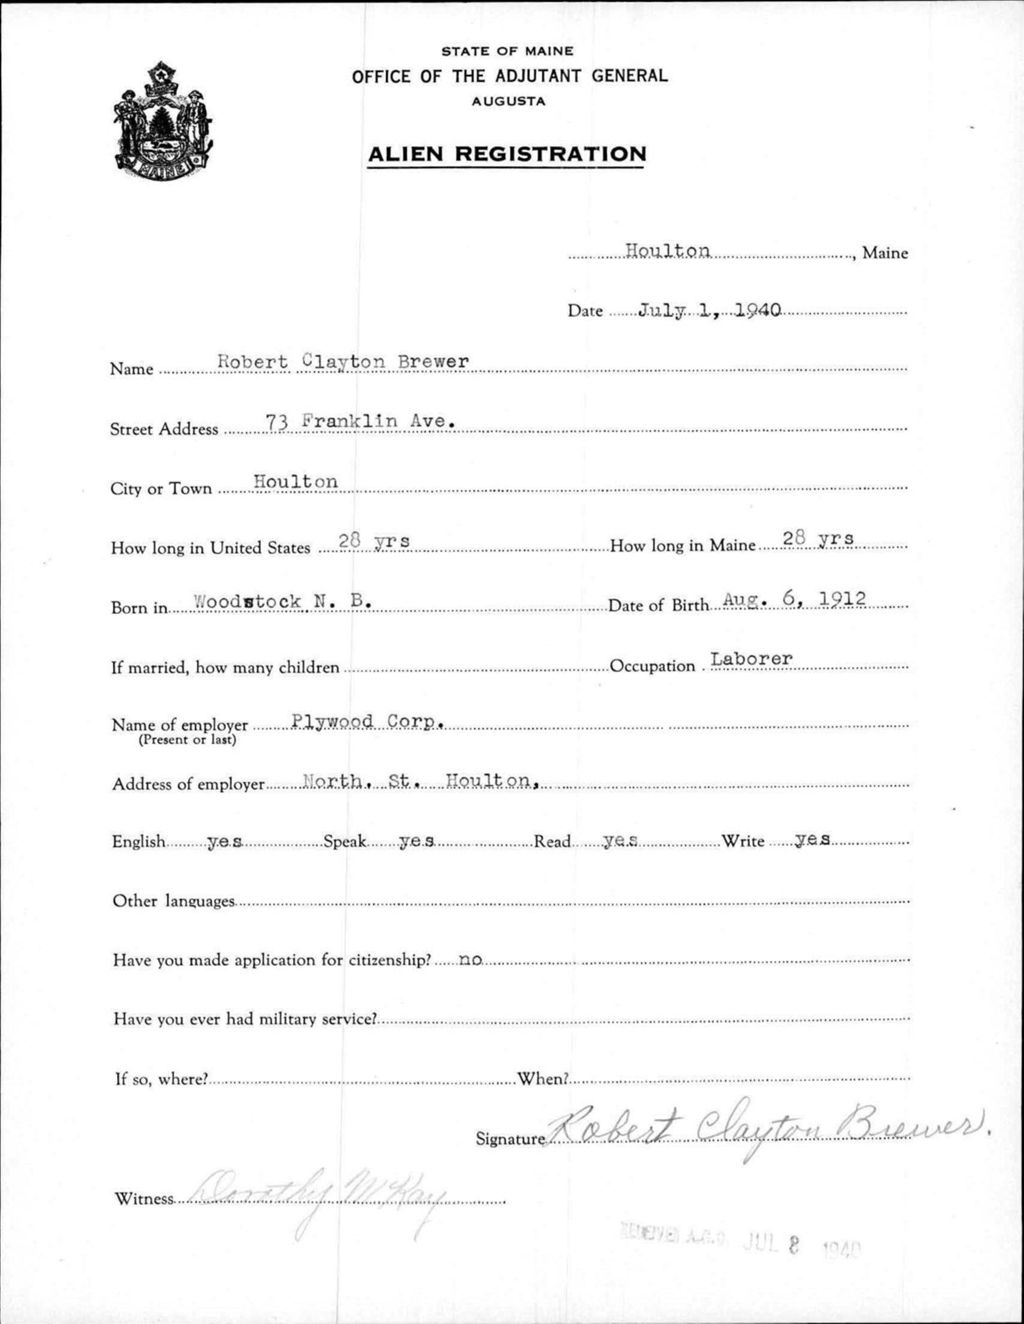 STATE OF MAINE
OFFICE OF THE ADJUTANT GENERAL
AUGUSTA
ALIEN REGISTRATION
MAINE
Houlton, Maine
Date July 1, 1940
Name Robert Clayton Brewer
Street Address 73 Franklin Ave.
City or Town Houlton
How long in United States 28 yrs How long in Maine 28 yrs
Born in Woodstock N. B. Date of Birth Aug. 6, 1912
If married, how many children Occupation Laborer
Name of employer Plywood Corp.
(Present or last)
Address of employer North. St. Houlton,
English yes Speak yes Read yes Write yes
Other languages
Have you made application for citizenship? no
Have you ever had military service?
If so, where? When?
Signature Robert Clayton Brewer.
Witness Dorothy McKay
RECEIVED A.G.O. JUL 8 1940